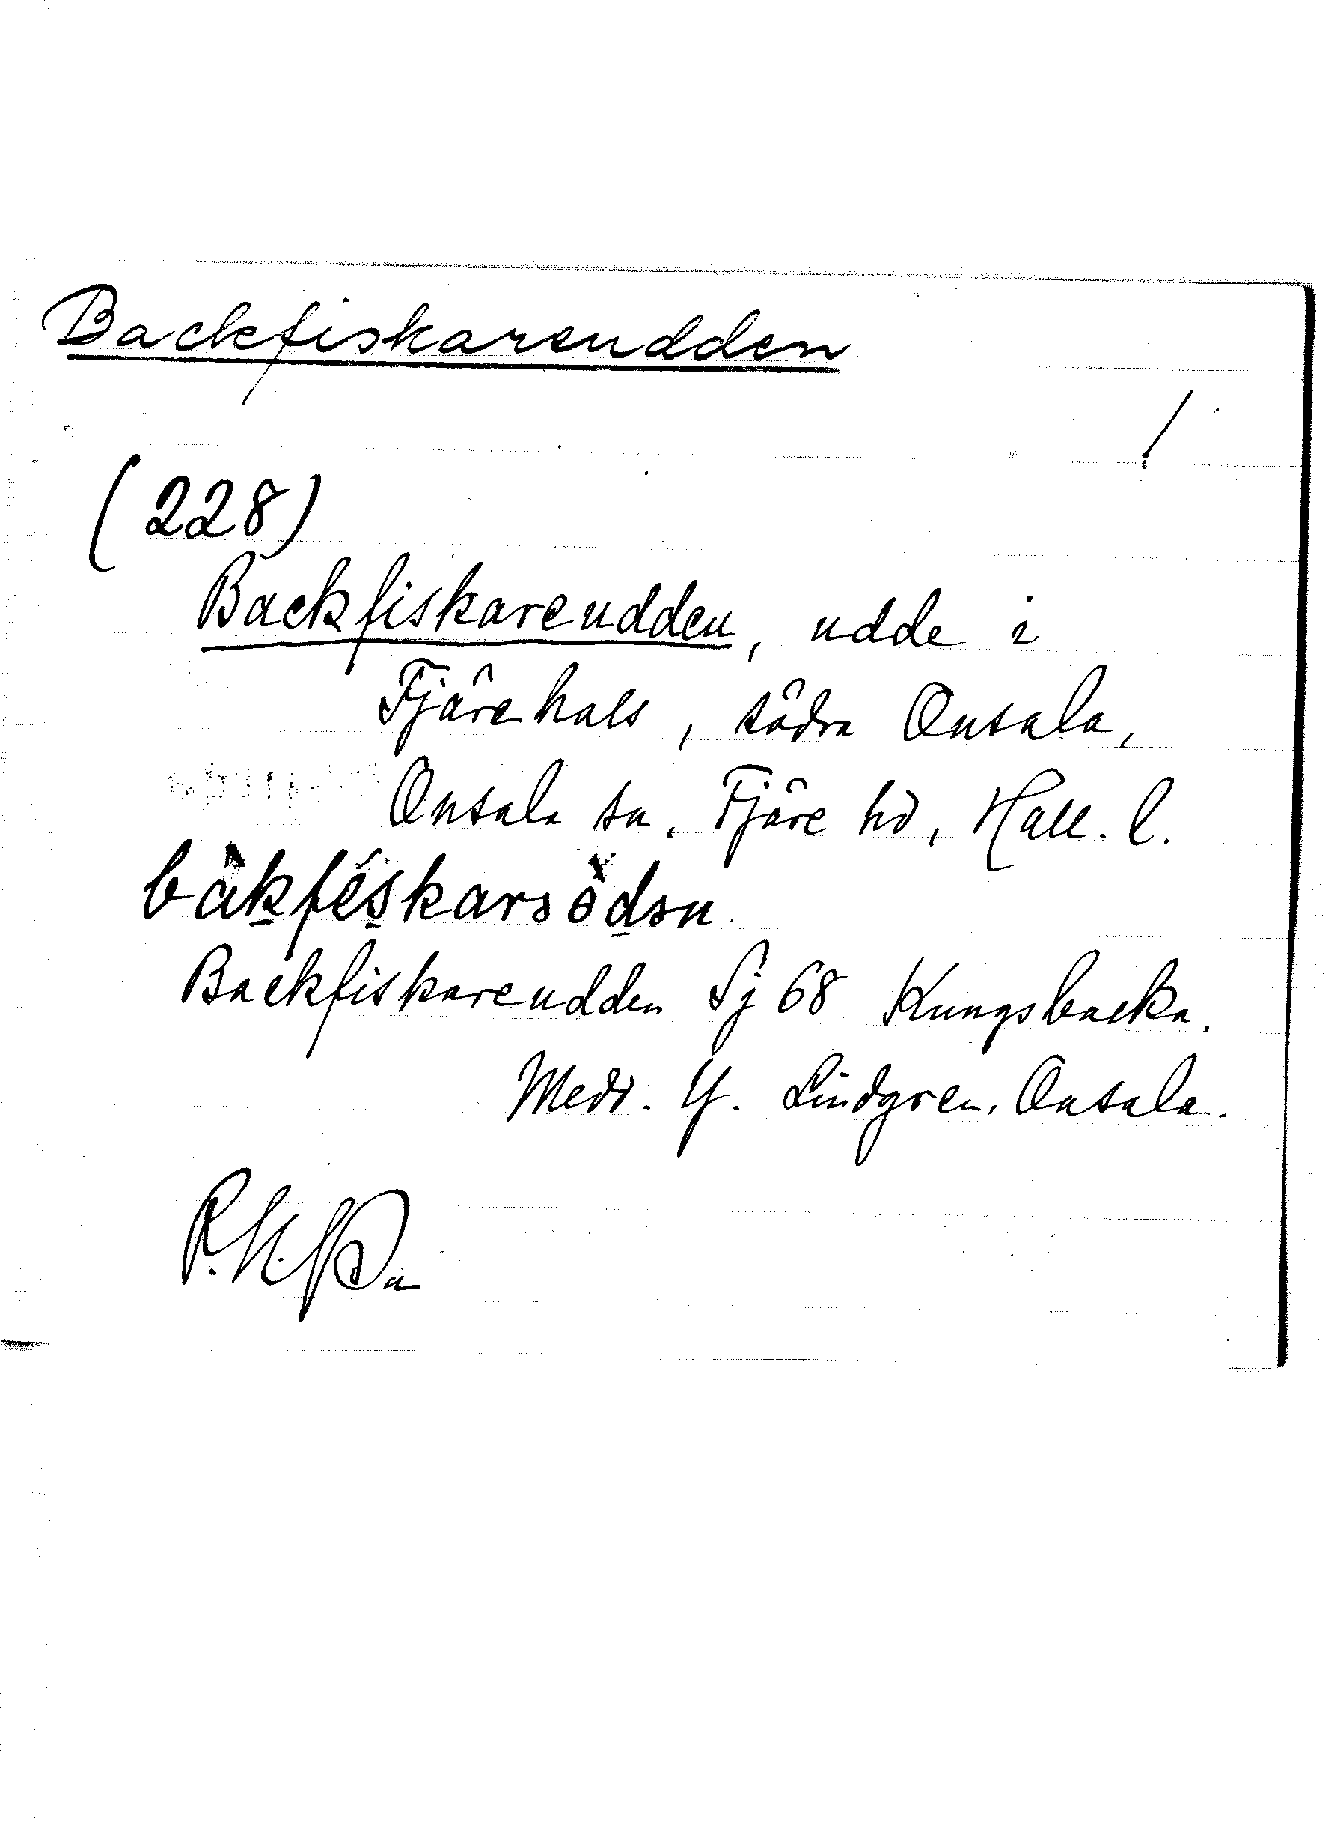 Backfiskareudden
/
(228)
Backfiskareudden, udde i
Fjärehals, södra Onsala,
Onsala sn, Fjäre hd, Hall. l.
Backfiskareudden Sj 68 Kungsbacka.
Medd. Y. Lindgren, Onsala.